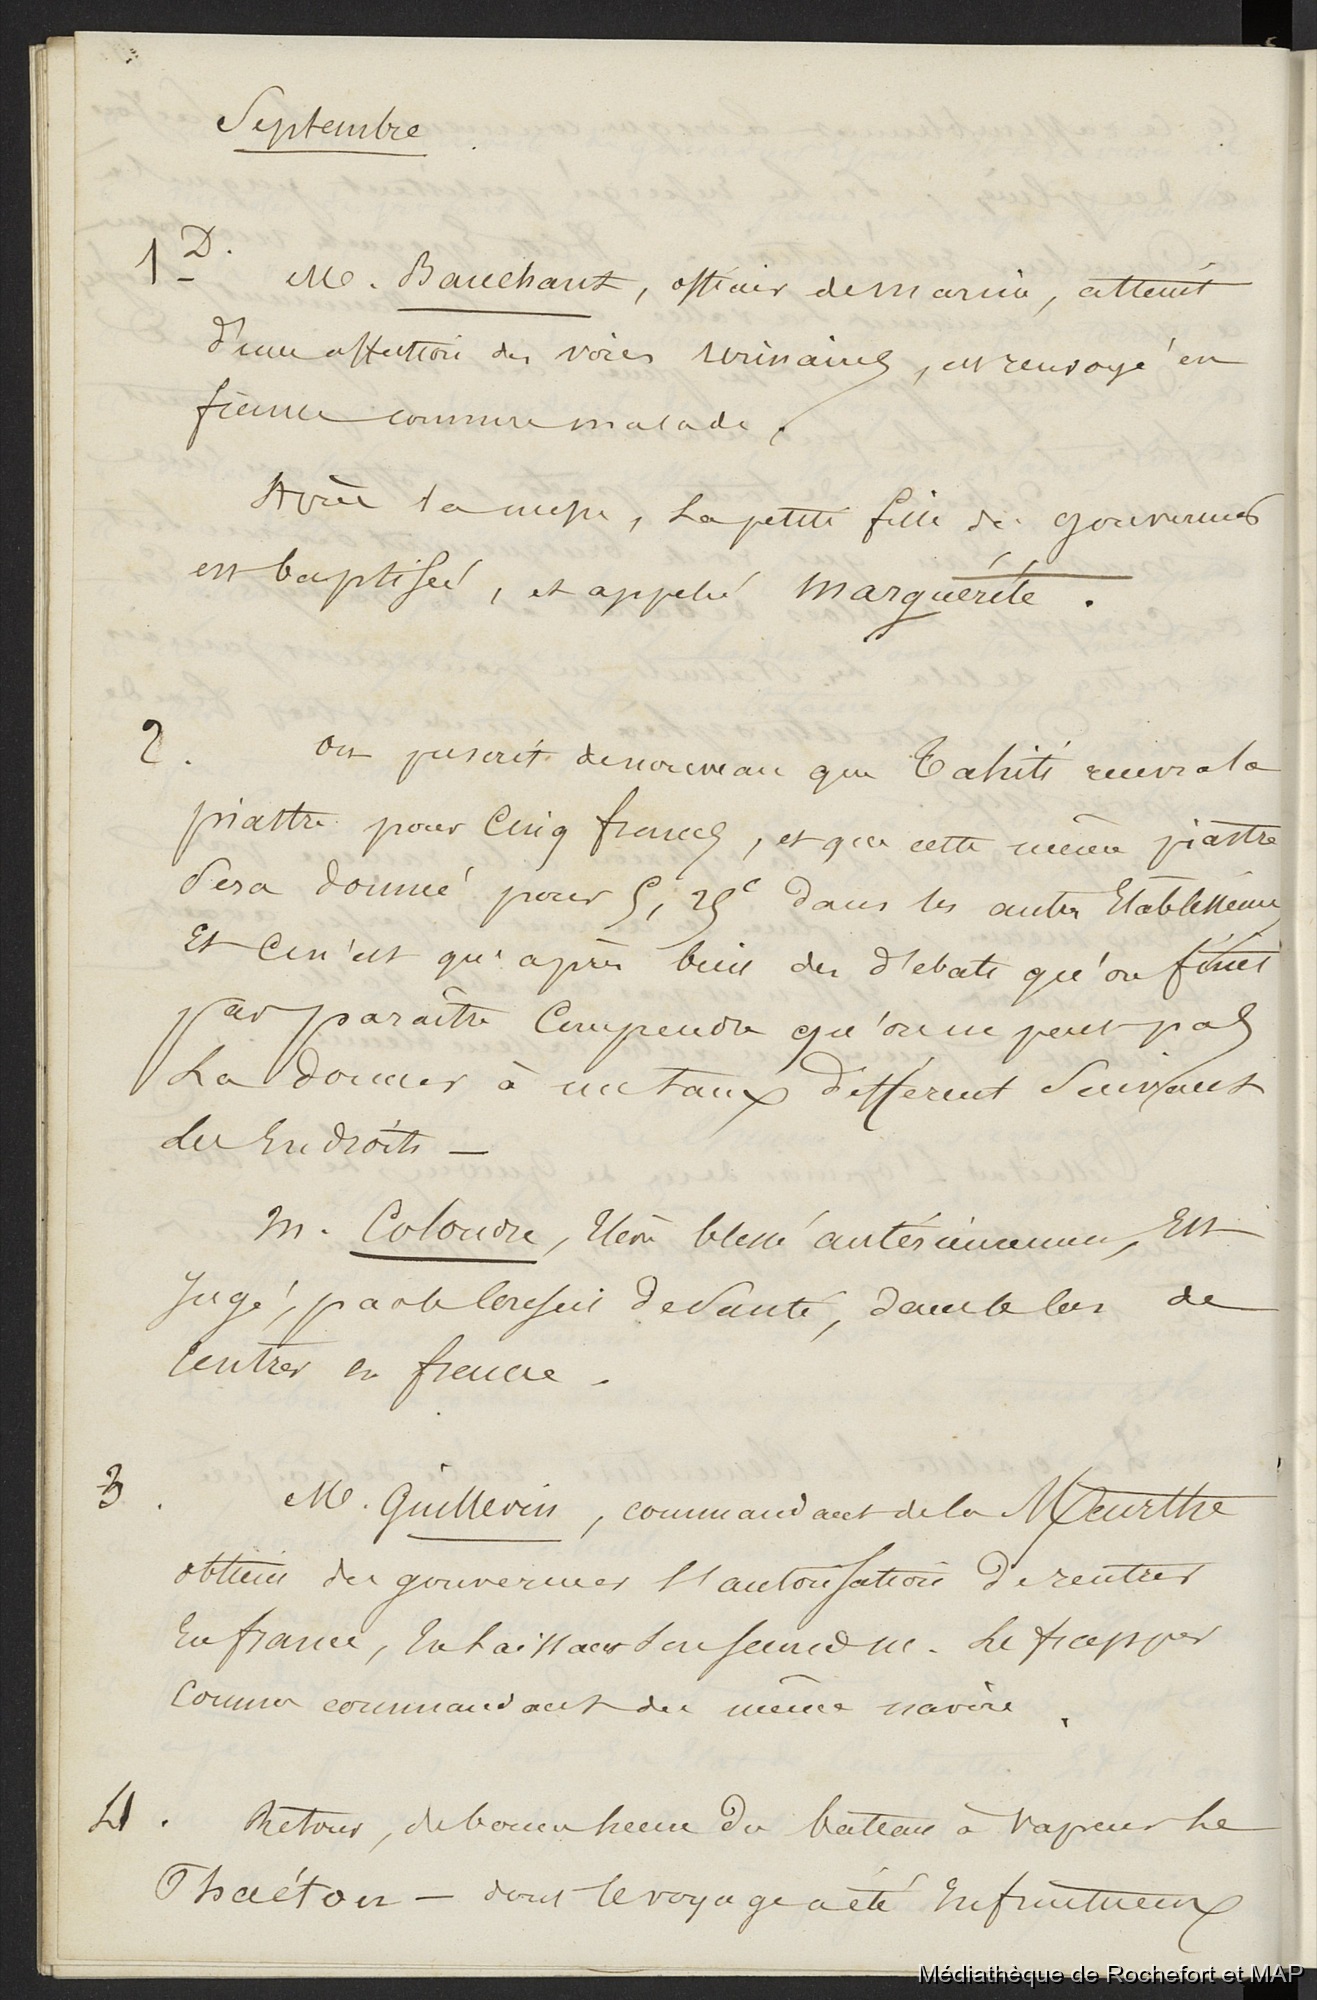 Septembre
1 D.
M. Bauchant, officier de marine, atteint
d'une affection des voies urinaires, est renvoyé en
france comme malade.
Après la messe, La petite fille du gouverneur
est baptisée, et appelée Marguérite.
2.
on prescrit de nouveau que Tahiti recevra la
piastre pour Cinq francs, et que cette même piastre
Sera donnée pour 5, 25c dans les autres Etablissemens
Et Ce n'est qu'après bien des débats qu'on finit
par paraître Comprendre qu'on ne peut pas
La donner à un taux différent Suivant
les Endroits —
M. Coloudre, blessé antérieurement, Est
Jugé, par le Conseil de Santé, dans le cas de
rentrer en france.
3.
M. Guillevin, commandant de la Meurthe
obtient du gouverneur l'autorisation de rentrer
En france, En laissant Son Second M. Le frapper
Comme commandant du même navire.
4.
Retour, de bonne heure du bateau à vapeur Le
Phaéton — dont le voyage a été Infructueux
Médiathèque de Rochefort et MAP